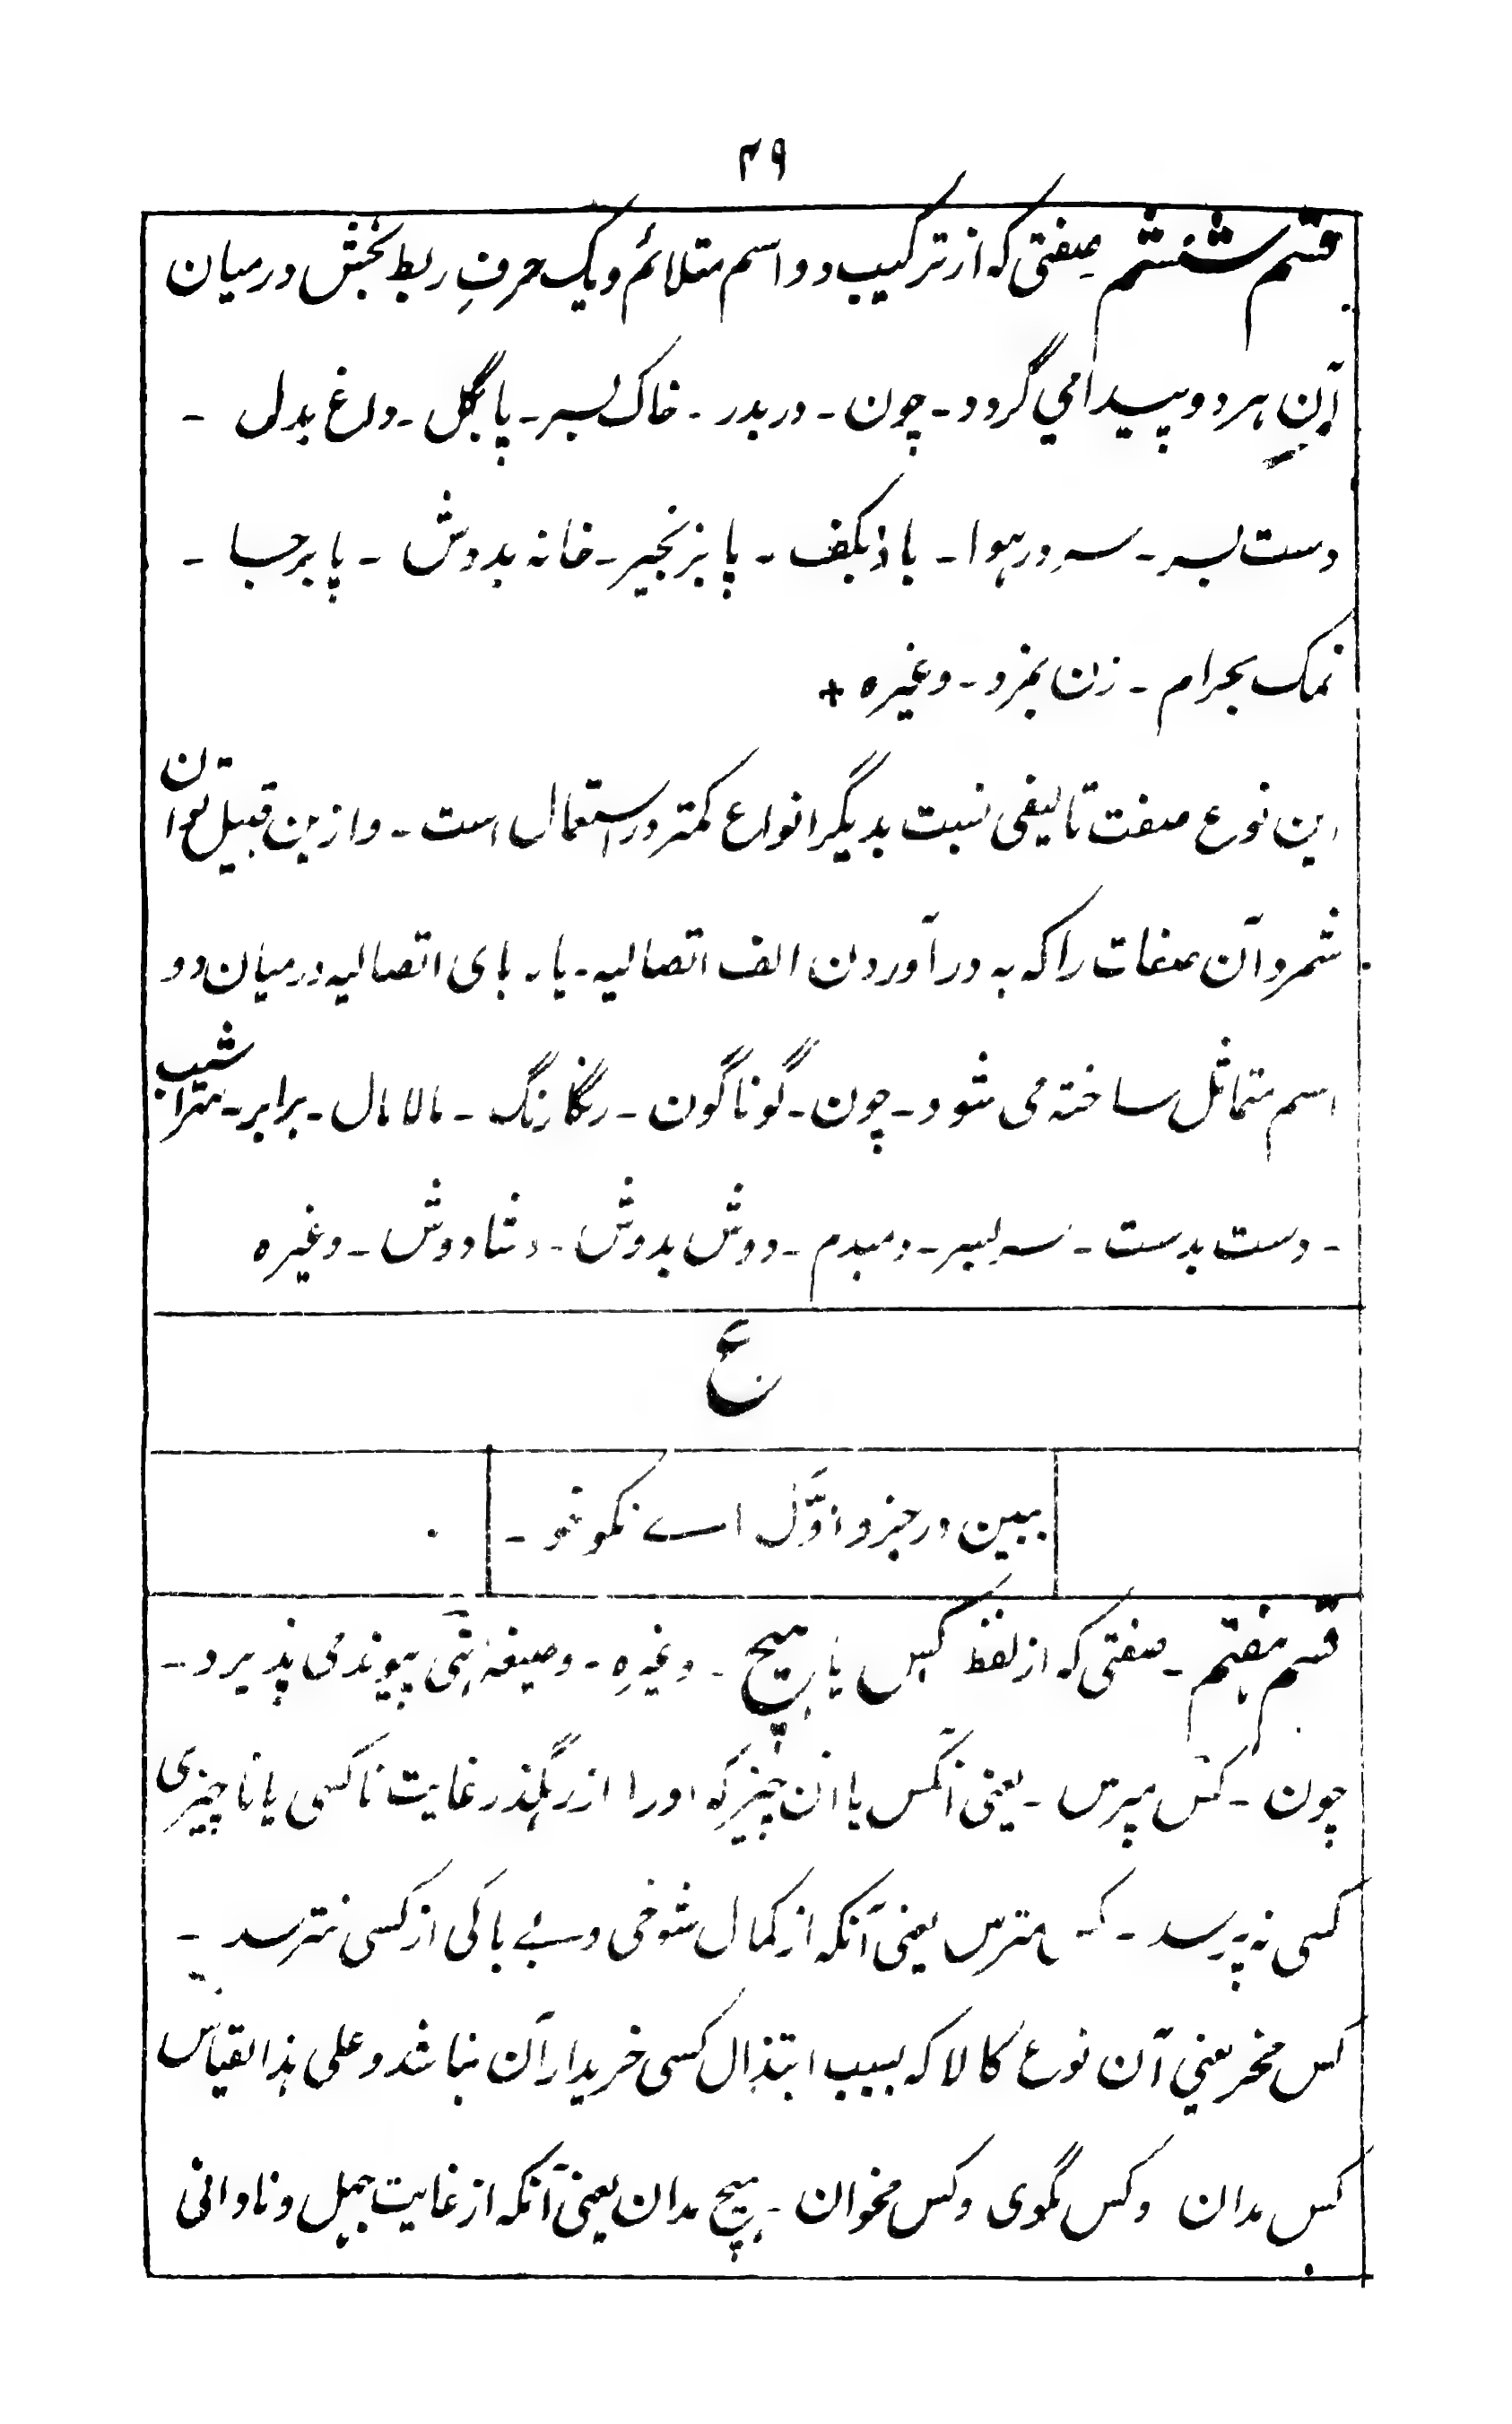 ۴۹
قسم ششم صفتی که از ترکیب دو اسم متلائم و یک حرفِ ربط بخش درمیان
این هر دو پیدا می گردد - چون - در بدر - خاک بسر - پا بگل - داغ بدل -
دست بسر - سر در هوا - باد بکف - پا بزنجیر - خانه بدوش - پا بر جا -
نمک بحرام - زن بمزد - وغیره +
این نوع صفت تالیفی نسبت بدیگر انواع کمتر در استعمال است - و ازین قبیل توان
شمرد آن صفات را که به در آوردن الف اتصالیه - یا - بای اتصالیه درمیان دو
اسم متماثل ساخته می شود - چون - گوناگون - رنگارنگ - مالامال - برابر - شراشب
- دست بدست - سر بسر - دمبدم - دوش بدوش - دشادوش - وغیره
ع
ببین در جزو اوّل اے نکو خو -
قسم هفتم - صفتی که از لفظ کس یا هیچ - وغیره - و صیغهٔ نهی پیوند می پذیرد -
چون - کس مپرس - یعنی آنکس یا آن چیز که او را از رهگذر غایت ناکسی یا ناچیزی
کسی نه پرسد - کس مترس یعنی آنکه از کمال شوخی و بے باکی از کسی نترسد -
کس مخر یعنی آن نوع کالا که بسبب ابتذال کسی خریدار آن نباشد و علی هذا القیاس
کس مدان و کس مگوی و کس مخوان - هیچ مدان یعنی آنکه از غایت جهل و نادانی